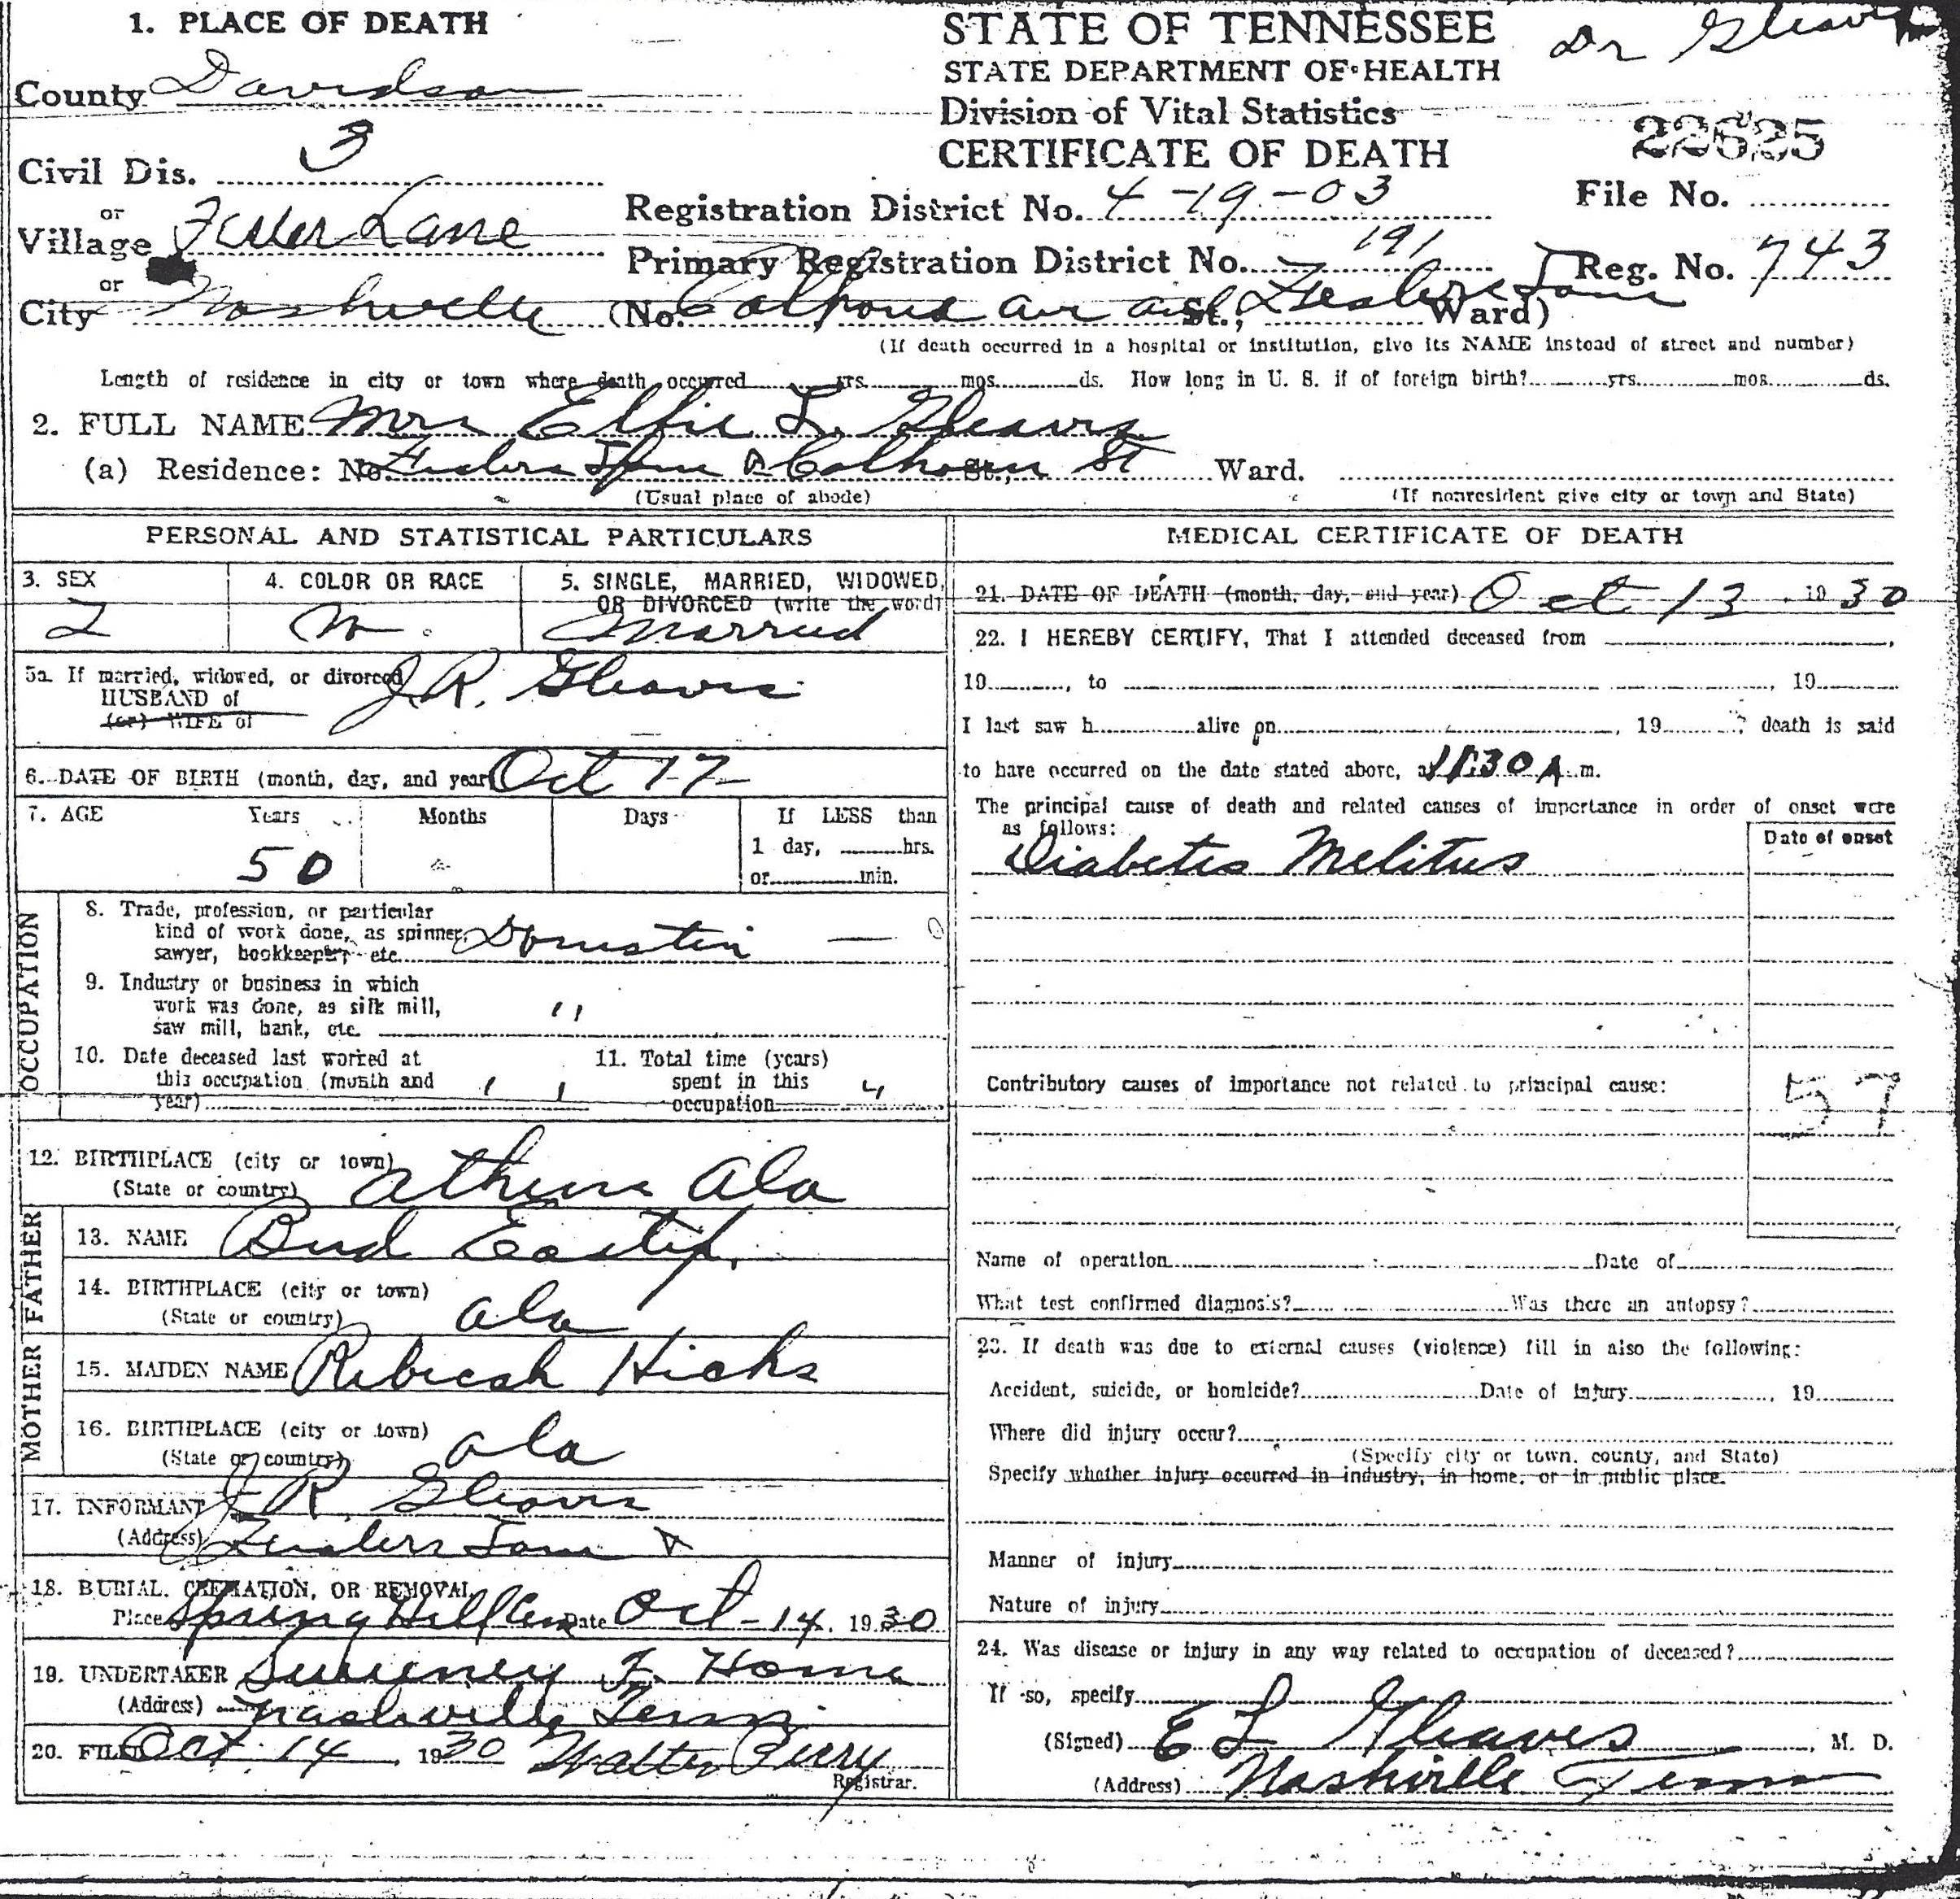 1. PLACE OF DEATH
STATE OF TENNESSEE
Dr Gleaves
County Davidson
STATE DEPARTMENT OF HEALTH
Division of Vital Statistics
22625
Civil Dis. 3
CERTIFICATE OF DEATH
File No.
or
Village Lane
Registration District No. 4-19-03
Primary Registration District No. 191
Reg. No. 743
or
City Nashville (No. Calhoun av and St., Lane Ward)
(If death occurred in a hospital or institution, give its NAME instead of street and number)
Length of residence in city or town where death occurred yrs. mos. ds. How long in U. S. if of foreign birth? yrs. mos. ds.
2. FULL NAME Mrs Effie L. Gleaves
(a) Residence: No. Lane & Calhoun St St., Ward.
(Usual place of abode) (If nonresident give city or town and State)
PERSONAL AND STATISTICAL PARTICULARS
3. SEX 4. COLOR OR RACE 5. SINGLE, MARRIED, WIDOWED, OR DIVORCED (write the word)
Married
5a. If married, widowed, or divorced
HUSBAND of
(or) WIFE of
J. R. Gleaves
6. DATE OF BIRTH (month, day, and year) Oct 17
7. AGE Years Months Days If LESS than
1 day, hrs.
or min.
50
OCCUPATION
8. Trade, profession, or particular
kind of work done, as spinner,
sawyer, bookkeeper, etc. Domestic
9. Industry or business in which
work was done, as silk mill,
saw mill, bank, etc. "
10. Date deceased last worked at
this occupation (month and
year)
11. Total time (years)
spent in this
occupation
12. BIRTHPLACE (city or town)
(State or country) Athens Ala
FATHER
13. NAME Bud Eastep
14. BIRTHPLACE (city or town)
(State or country) Ala
MOTHER
15. MAIDEN NAME Rebicah Hicks
16. BIRTHPLACE (city or town)
(State or country) Ala
17. INFORMANT J R Gleaves
(Address) Lane
18. BURIAL, CREMATION, OR REMOVAL
Place Spring Hill Cem Date Oct-14, 1930
19. UNDERTAKER Sweeney F. Home
(Address) Nashville Tenn.
20. FILED Oct 14, 1930 Walter Perry
Registrar.
MEDICAL CERTIFICATE OF DEATH
21. DATE OF DEATH (month, day, and year) Oct 13, 1930
22. I HEREBY CERTIFY, That I attended deceased from
19 , to , 19
I last saw h alive on , 19 ; death is said
to have occurred on the date stated above, at 11:30 A.m.
The principal cause of death and related causes of importance in order of onset were
as follows:
Date of onset
Diabetis Melitus
Contributory causes of importance not related to principal cause:
57
Name of operation Date of
What test confirmed diagnosis? Was there an autopsy?
23. If death was due to external causes (violence) fill in also the following:
Accident, suicide, or homicide? Date of injury , 19
Where did injury occur?
(Specify city or town, county, and State)
Specify whether injury occurred in industry, in home, or in public place.
Manner of injury
Nature of injury
24. Was disease or injury in any way related to occupation of deceased?
If so, specify
(Signed) E L Gleaves, M. D.
(Address) Nashville Tenn